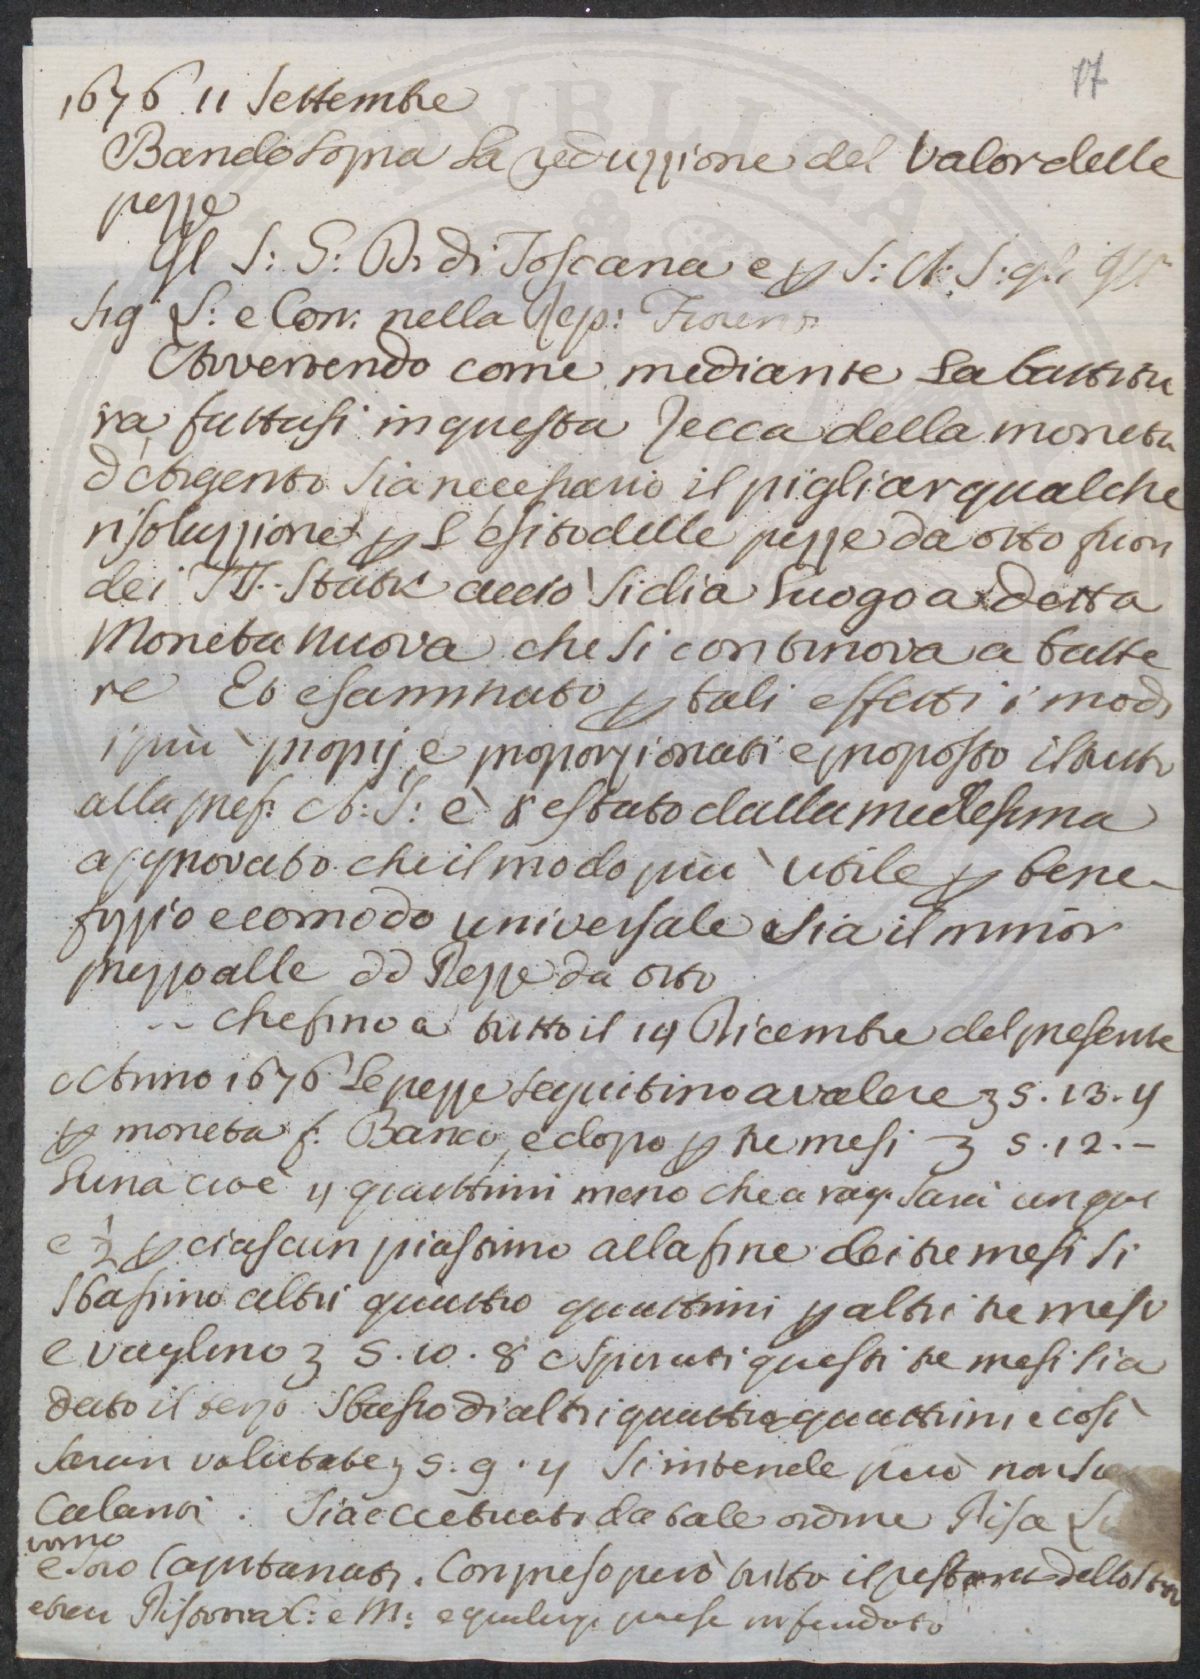 17
1676 11 Settembre
Bando sopra la reduzzione del Valor delle
pezze
Il S: G: D. di Toscana e p S: A: S: gli
Sig L: e Con: nella Rep: Fiorent
Avvertendo come mediante la battitu
ra fattasi in questa Zecca della moneta
d'Argento sia necessario il pigliar qualche
risoluzzione p l'esito delle pezze da otto fuori
dei SS. Stati acciò si dia luogo a detta
Moneta nuova che si continova a batte
re Et esaminato p tali effetti i modi
i più proprij e proporzionati e proposto il tutto
alla pref: A: S: è restato dalla medesima
approvato che il modo più utile p bene-
fizzio e comodo universale sia il minor
prezzo alle dd Pezze da otto
-- che fino a tutto il 14 Dicembre del presente
Anno 1676 le pezze seguitino a valere 3 5.13.4
p moneta f. Banco, e dopo p tre mesi 3 5.12.-
l'una cioè 4 quattrini meno che a rag. sarà un qu
e 1/2 p ciascun piastrino alla fine dei tre mesi si
sbassino altri quattro quattrini p altri tre mesi
e vaglino 3 5.10.8 e spirati questi tre mesi sia
dato il terzo sbasso di altri quattro quattrini e così
saran valutate 3 5.9.4 s'intende però non sie
Calanti. Sia eccetuato da tale ordine Pisa Li
vorno
e loro Capitanati. Compreso però tutto il restante dello Stato
etian Pistoria C: e M: e qualsi. paese infeudato